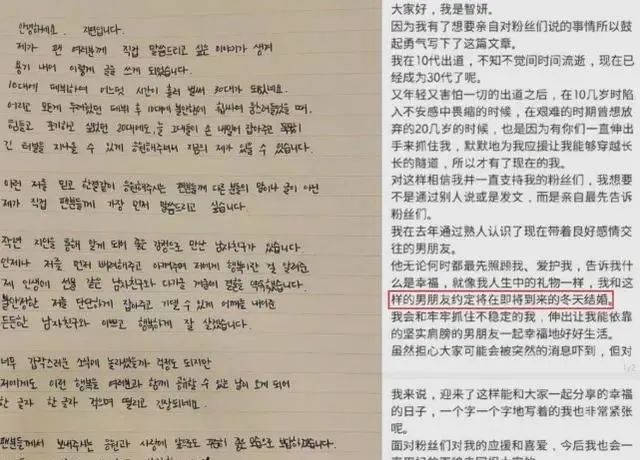 안녕하세요. 지연입니다.
제가 팬 여러분께 직접 말씀드리고 싶은 이야기가 생겨
용기 내어 이렇게 글을 쓰게 되었습니다.
10대에 데뷔하여 어느덧 시간이 흘러 벌써 30대가 되었네요.
어리고 모든게 두려웠던 데뷔 후 10대에 불안함에 휩싸여 움츠러들었을 때,
힘들고 포기하고 싶었던 20대에도, 늘 그대들이 손 내밀어 잡아주고 묵묵히
긴 터널을 지나올 수 있게 응원해주셔서 지금의 제가 있을 수 있습니다.
이런 저를 믿고 한결같이 응원해주시는 팬분들께 다른 분들의 말이나 글이 아닌
제가 직접 팬분들께 가장 먼저 말씀드리고 싶습니다.
작년 지인을 통해 알게 돼 좋은 감정으로 만난 남자친구가 있습니다.
언제나 저를 먼저 배려해주고 아껴주며 저에게 행복이란 걸 알려준
제 인생에 선물 같은 남자친구와 다가올 겨울에 결혼을 약속했습니다.
불안정한 저를 단단하게 잡아주고 기댈 수 있게 어깨를 내어준
든든한 남자친구와 이쁘고 행복하게 잘 살겠습니다.
너무 갑작스러운 소식에 놀라셨을까 걱정도 되지만
저에게도 이런 행복을 여러분과 함께 공유할 수 있는 날이 오게 되어
한 글자 한 글자 적으며 떨리고 긴장되네요.
팬분들께서 보내주시는 응원과 사랑에 앞으로도 꾸준히 좋은 모습으로 보답하겠습니다.
大家好，我是智妍。
因为我有了想要亲自对粉丝们说的事情所以鼓
起勇气写下了这篇文章。
我在10代出道，不知不觉间时间流逝，现在已
经成为30代了呢。
又年轻又害怕一切的出道之后，在10几岁时陷
入不安感中畏缩的时候，在艰难的时期曾想放
弃的20几岁的时候，也是因为有你们一直伸出
手来抓住我，默默地为我应援让我能够穿越长
长的隧道，所以才有了现在的我。
对这样相信我并一直支持我的粉丝们，我想要
不是通过别人说或是发文，而是亲自最先告诉
粉丝们。
我在去年通过熟人认识了现在带着良好感情交
往的男朋友。
他无论何时都最先照顾我、爱护我，告诉我什
么是幸福，就像我人生中的礼物一样，我和这
样的男朋友约定将在即将到来的冬天结婚。
我会和牢牢抓住不稳定的我，伸出让我能依靠
的坚实肩膀的男朋友一起幸福地好好生活。
虽然担心大家可能会被突然的消息吓到，但对
1/2
我来说，迎来了这样能和大家一起分享的幸福
的日子，一个字一个字地写着的我也非常紧张
呢。
面对粉丝们对我的应援和喜爱，今后我也会一